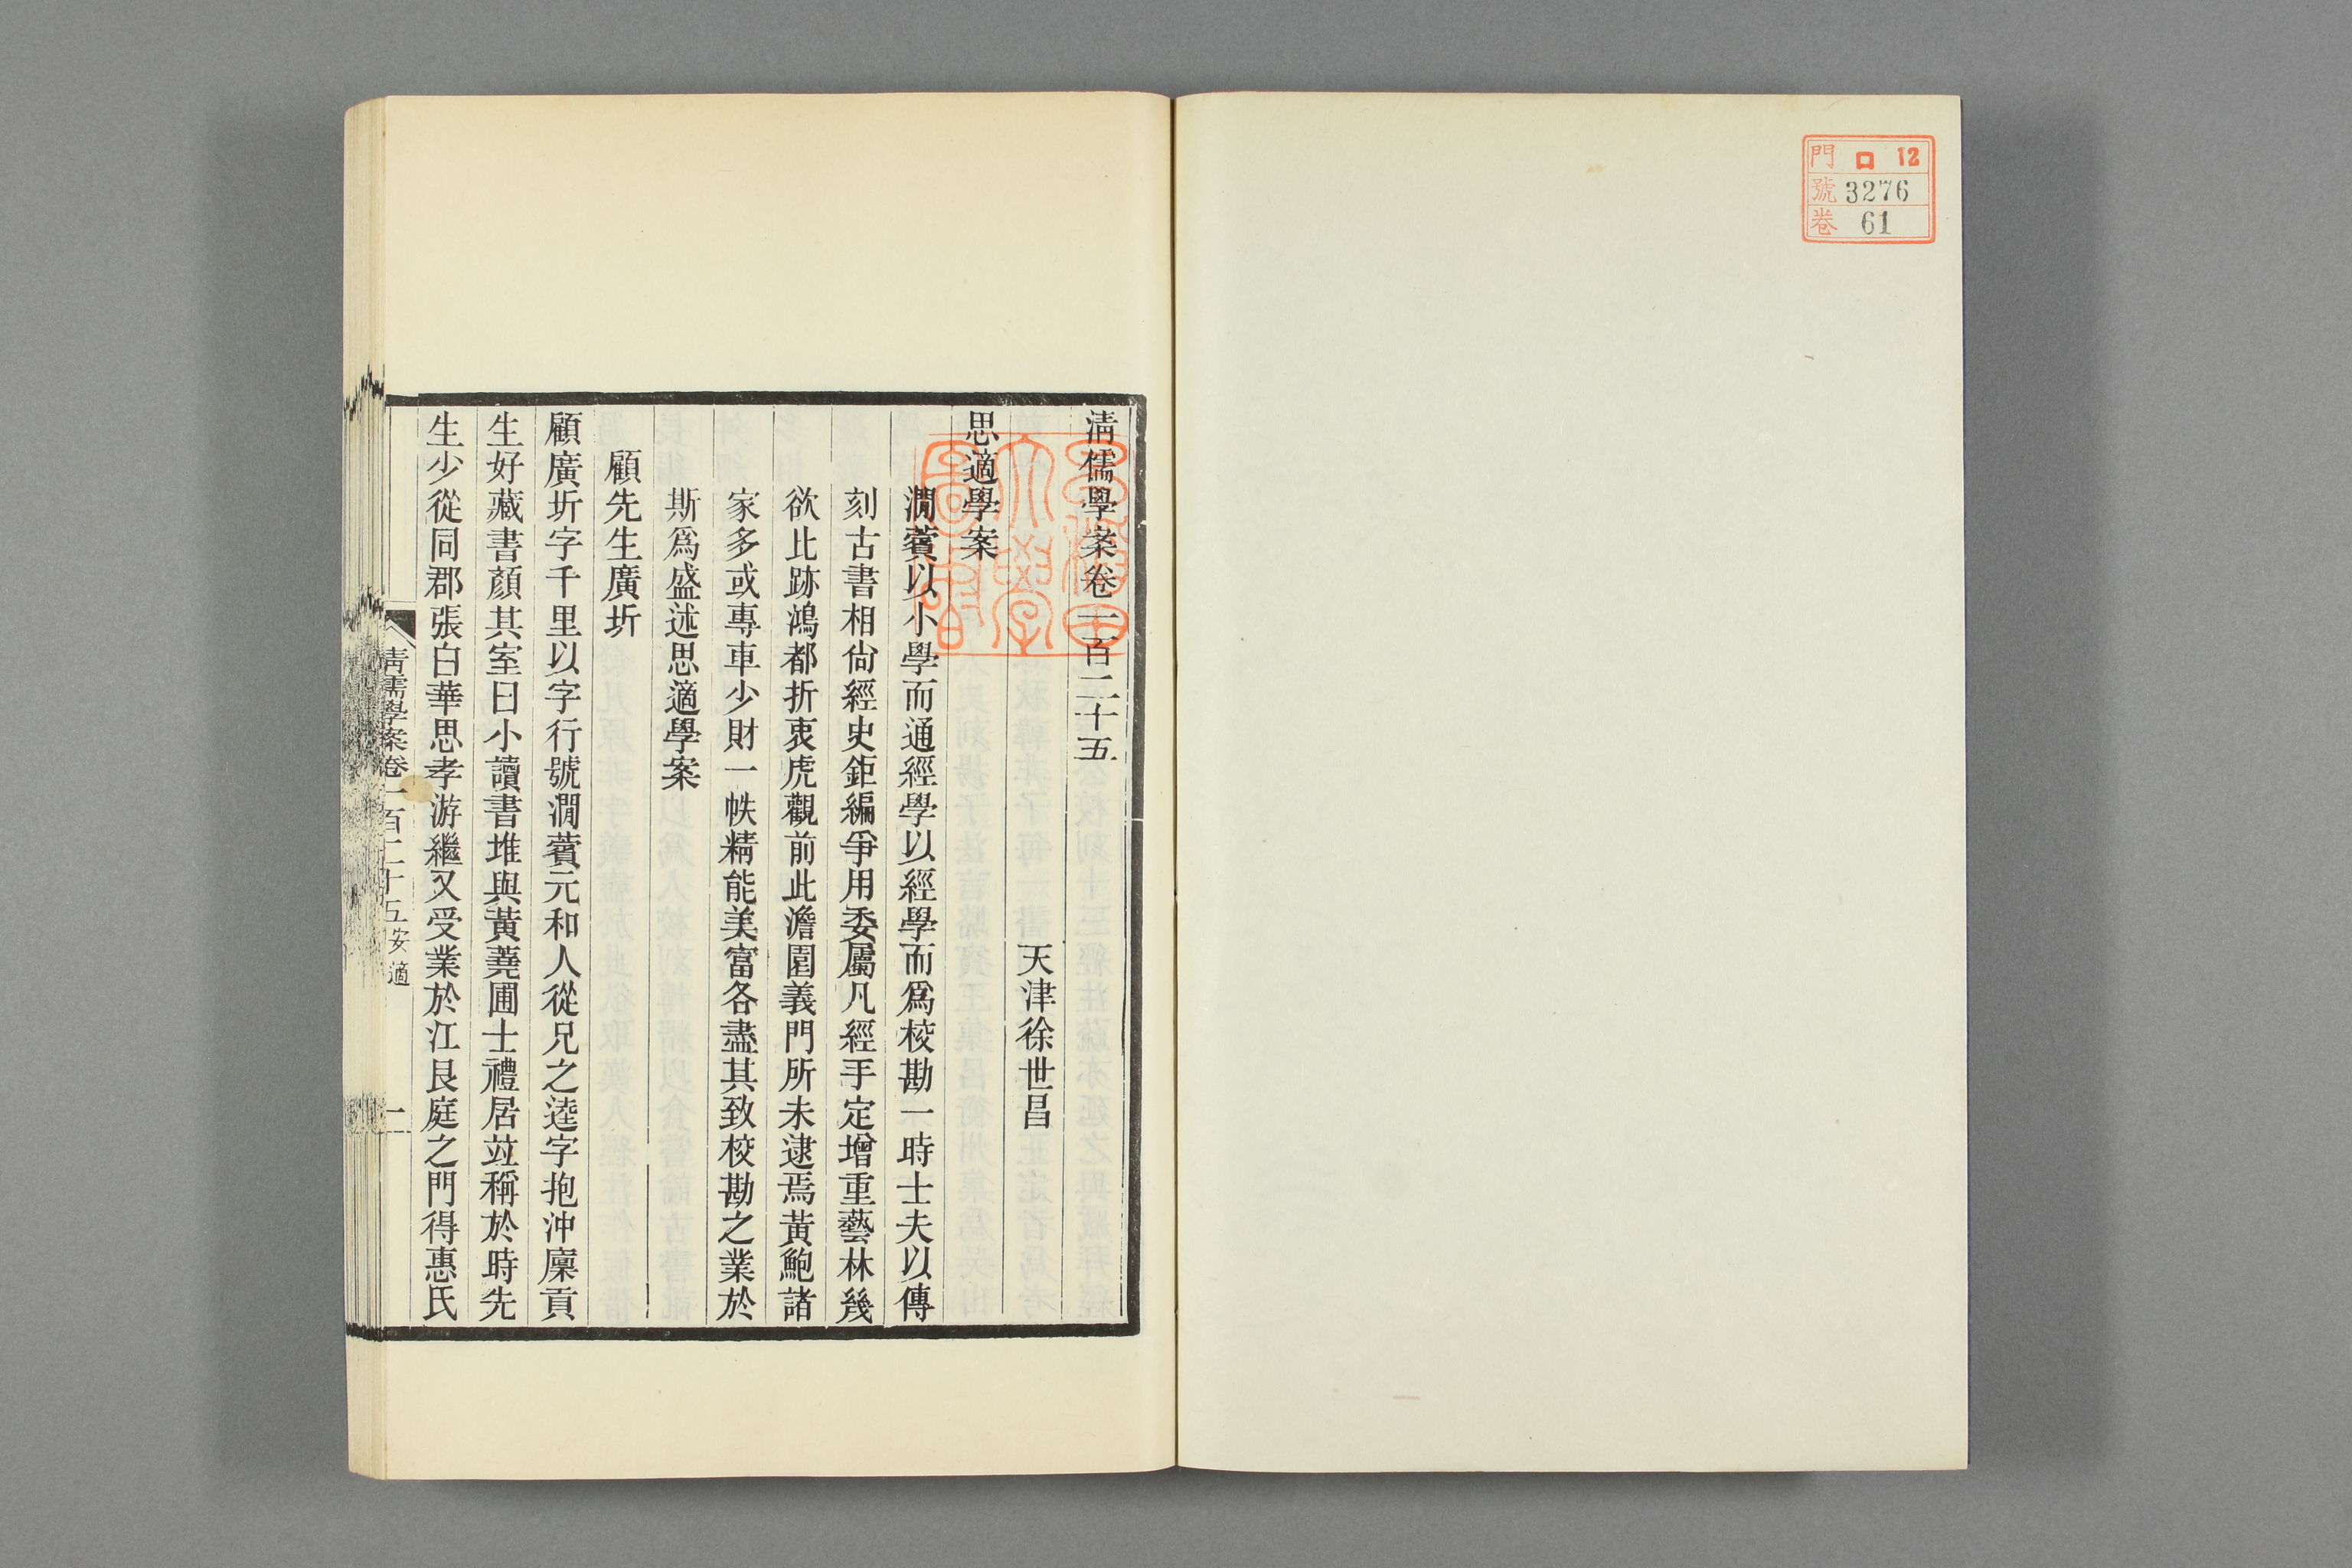 門 口 12
號 3276
卷 61
清儒學案卷一百二十五
天津徐世昌
思適學案
澗薲以小學而通經學以經學而爲校勘一時士夫以傳
刻古書相尙經史鉅編爭用委屬凡經手定增重藝林幾
欲比跡鴻都折衷虎觀前此澹園義門所未逮焉黃鮑諸
家多或專車少財一帙精能美富各盡其致校勘之業於
斯爲盛述思適學案
顧先生廣圻
顧廣圻字千里以字行號澗薲元和人從兄之逵字抱沖廩貢
生好藏書顏其室曰小讀書堆與黃蕘圃士禮居竝稱於時先
生少從同郡張白華思孝游繼又受業於江艮庭之門得惠氏
清儒學案卷一百二十五 安適 一
早稻田
大學
圖書